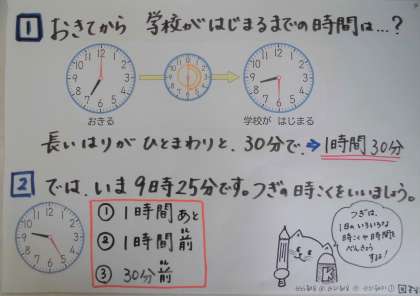 1 おきてから 学校がはじまるまでの時間は…?
おきる
学校が はじまる
長いはりが ひとまわりと、30分で、→1時間30分
2 では、いま9時25分です。つぎの時こくをいいましょう。
① 1時間あと
② 1時間前
③ 30分前
つぎは、
1日のいろいろな
時こくや時間を
べんきょう
するよ!